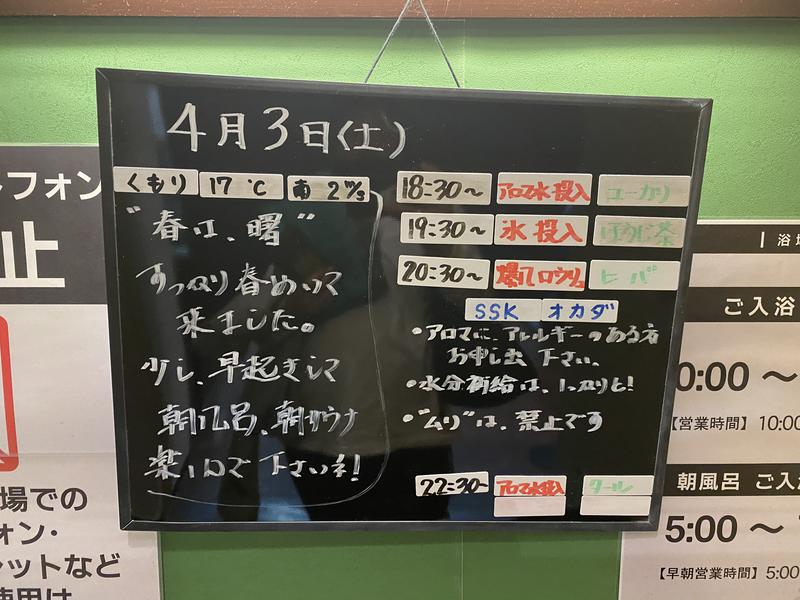 4月3日(土)
くもり 17℃ 南 2m/s
"春は、曙"
すっかり春めいて
来ました。
少し、早起きして
朝風呂、朝サウナ
楽しんで下さいネ!
18:30~ アロマ水投入 ユーカリ
19:30~ 氷投入 ほうじ茶
20:30~ 爆風ロウリュ ヒバ
SSK オカダ
•アロマに、アレルギーのある方
お申し出下さい。
•水分補給は、しっかりと!
•"ムリ"は、禁止です
22:30~ アロマ水投入 タール
フォン
止
場での
ォン・
ットなど
使用は
浴場
ご入浴
0:00 ~
【営業時間】10:00
朝風呂 ご入
5:00 ~
【早朝営業時間】5:00